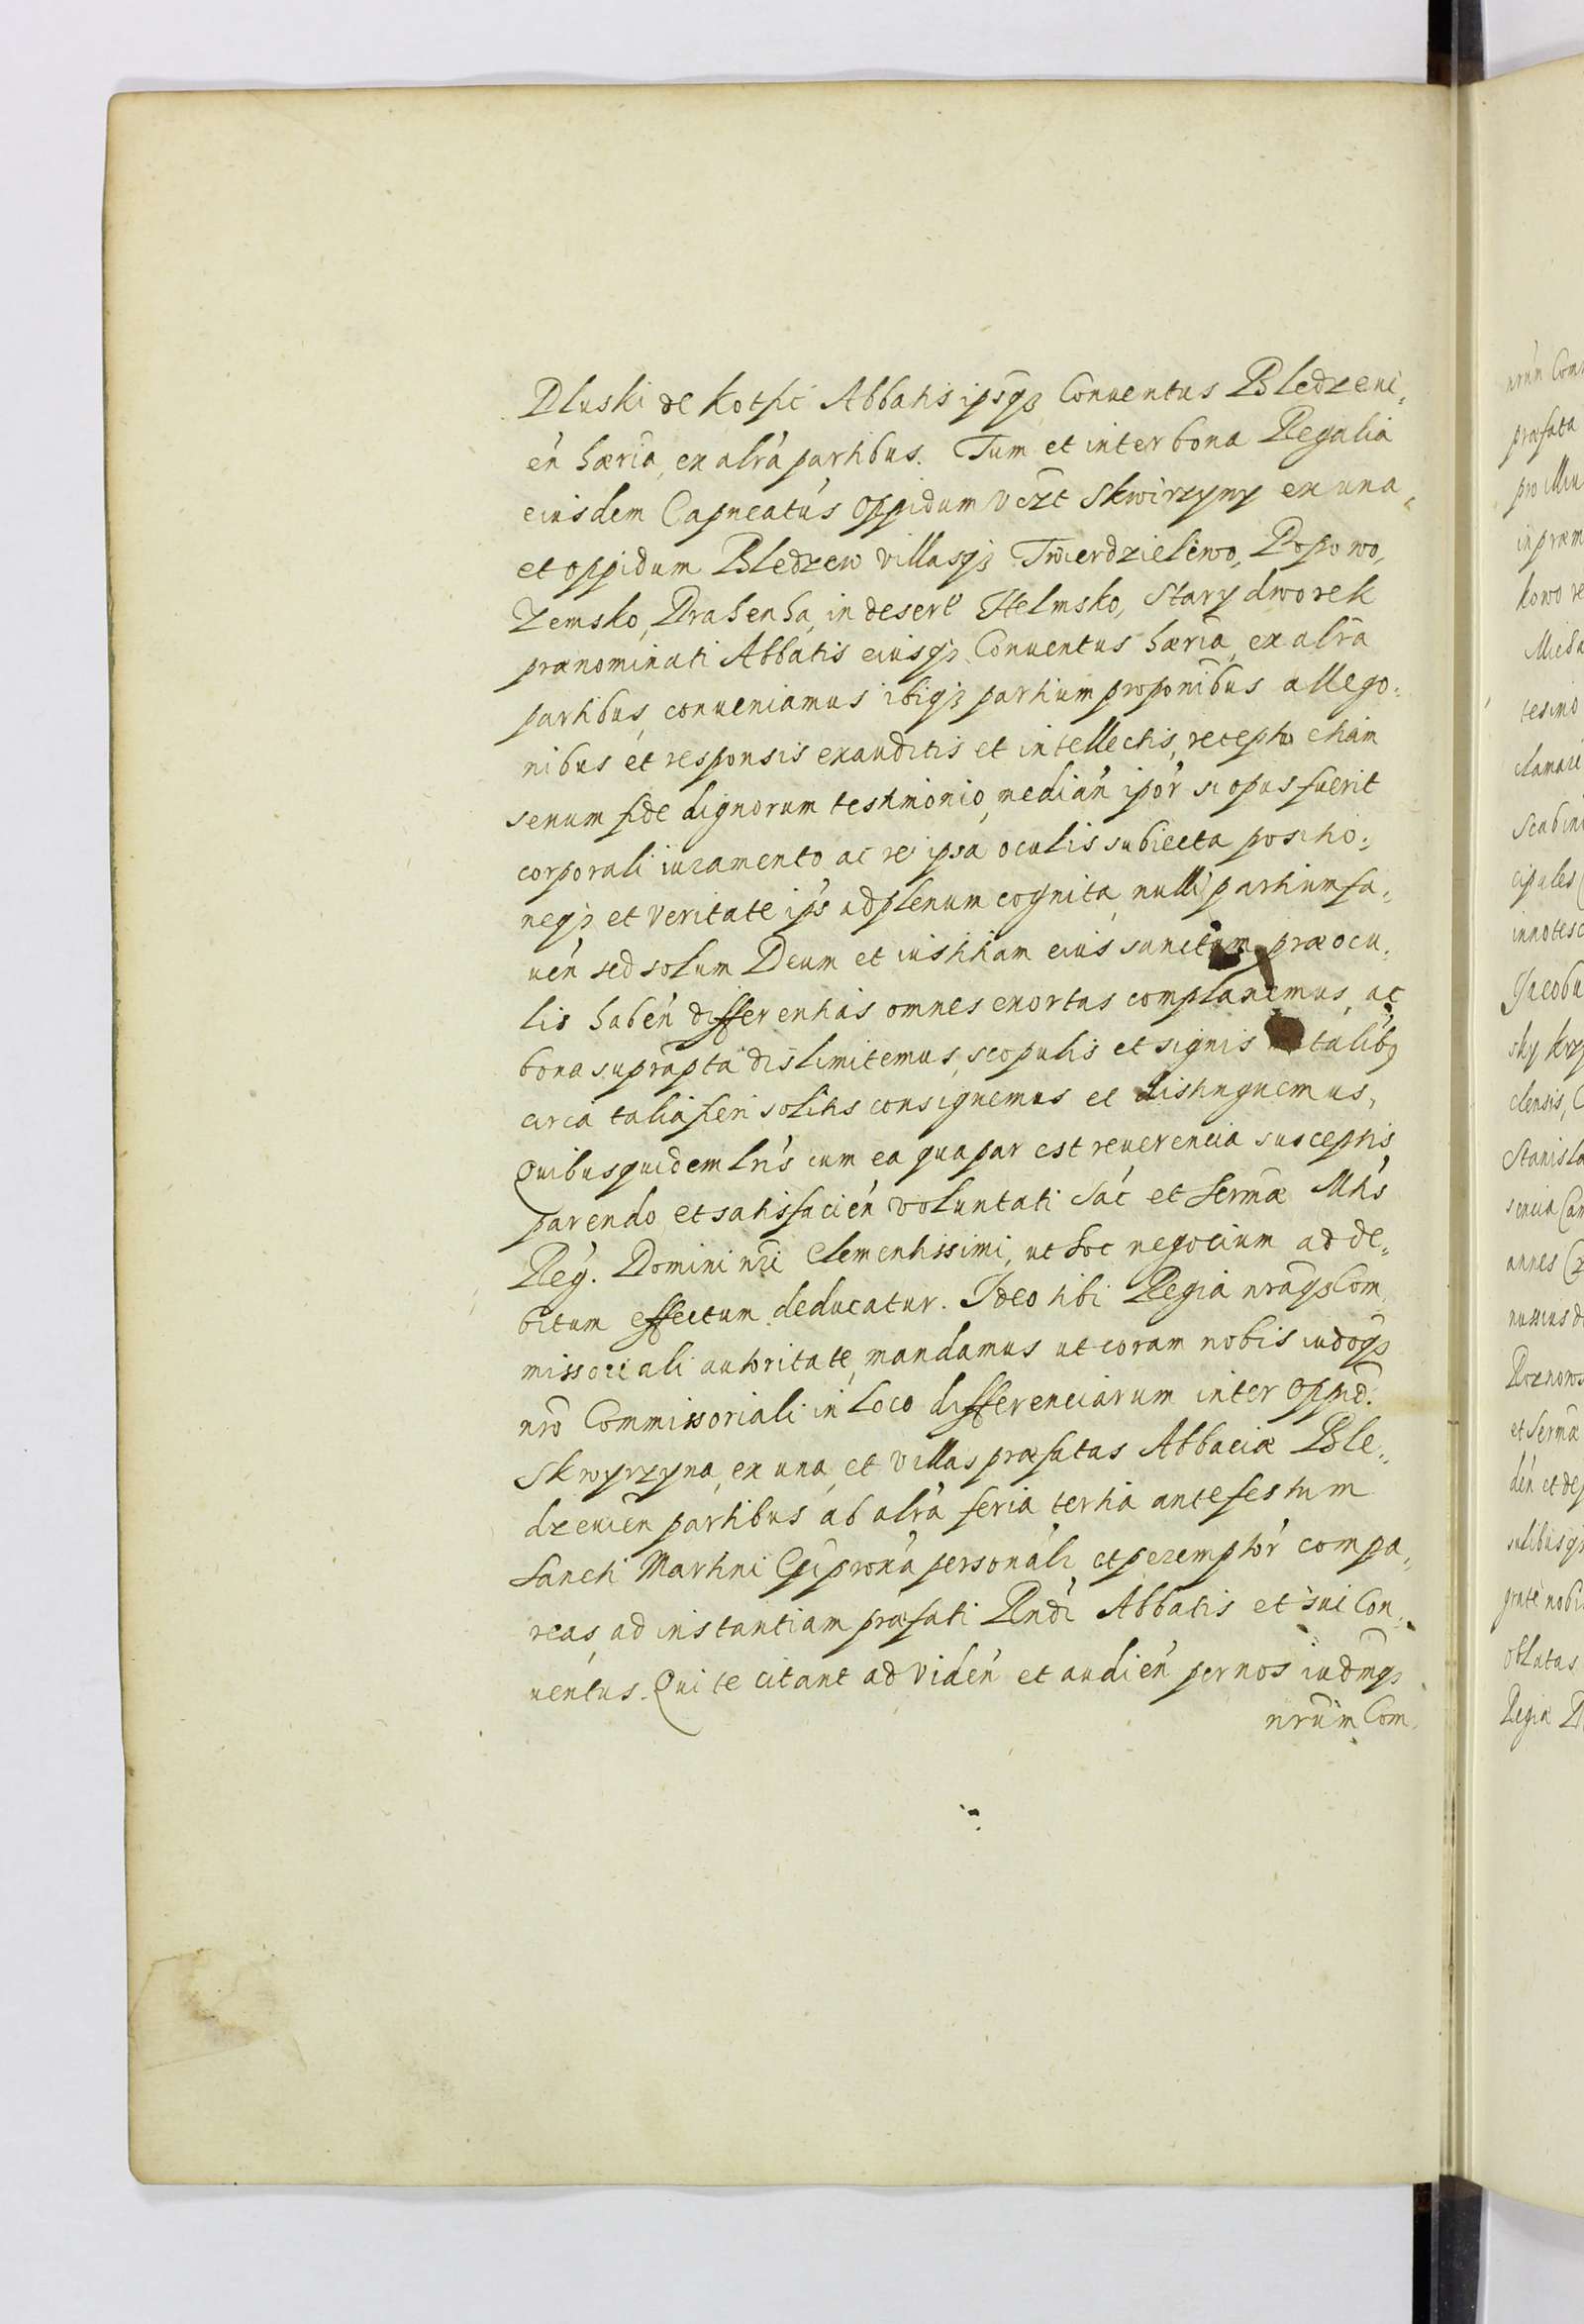 Dluski de Kotpic Abbatis ipsqȝ Conuentus Bledzeui,
eń hæria, ex alrá partibus. Tum et inter bona Regalia
eiusdem Capneatús oppidum vczt Skwirzyny ex una,
et oppidum Bledzew villasqȝ Twierdzielewo, Popowo,
Zemsko, in desert Helmsko, Stary dworek
prænominati Abbatis eiusqȝ Conuentus hæria, ex alra
partibus, conueniamus ibiqȝ partium proponibus allego:
nibus et responsis exauditis et intellectis, recepto etiam
senum fide dignorum testimonio, medián ipór si opus fuerit
corporali iuramento ac re ipsa oculis subiecta positio:
neqȝ et veritate ips ad plenum cognita, nulli partium fa:
uén sed solum Deum et iustitiam eius sanctam præ ocu:
lis habén differentias omnes exortas complanemus, ac
bona suprapta dislimitemus, scopulis et signis metalibȝ
circa talia fieri solitis consignemus et distinguemus,
Quibus quidem lrís cum ea qua par est reuerencia susceptis,
parendo et satisfacién voluntati Sac et Sermæ Mtis
Reg. Domini nri Clementissimi, ut hoc negocium ad de:
bitum effectum deducatur. Ideo tibi Regia nraqȝ Com
missoriali autoritate, mandamus ut coram nobis iudoqȝ
nro Commissoriali in loco differenciarum inter oppid:
Skwyrzyna, ex una, et villas præfatas Abbaciæ Ble,
dzeuien partibus ab alrá feria tertia ante festum
Sancti Martini personalr et peremptór compa,
reas, ad instantiam præfati Rndi Abbatis et sui Con,
uentus. Qui te citant ad vidén et audién per nos iudmqȝ
nrum Com.
nrum Com
præfata
pro illiu
in præm
kowo re
tesimo
clamare
Scabini
cipales
innotesc
Jacobu
sky Krz
clensis, C
Stanisla
annes
Poznows
et Sermæ
dén et de
grate nobi
oblatas
Regiæ